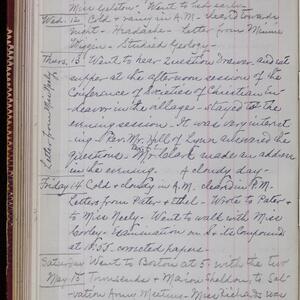 Miss Gelston. Went to bed early.
Wed. 12 Cold & rainy in A.M. - cleared towards
night - Headache - Letter from Minnie
Wiggin - Studied Geology -
Thurs. 13 Went to hear Question Drawer and ate
supper at the afternoon session of the
Conference of Societies of Christian En-
deavor in the village - stayed to the
evening session. It was very interest-
ing - Rev. Mr. Hill of Lynn answered the
questions. Mr. Clark made an address
in the evening. A cloudy day -
Letter from Miss Neely
Friday 14 Cold & cloudy in A.M. cleared in P.M.
Letters from Peter & Ethel - Wrote to Peter &
to Miss Neely - Went to walk with Miss
Cooley - Examination on S. & its Compounds
at corrected papers.
Saturday Went to Boston at 5 - with the two
May 15 Townsends & Marion Sheldon, to Sal-
vation Army Meeting - Miss Richards was